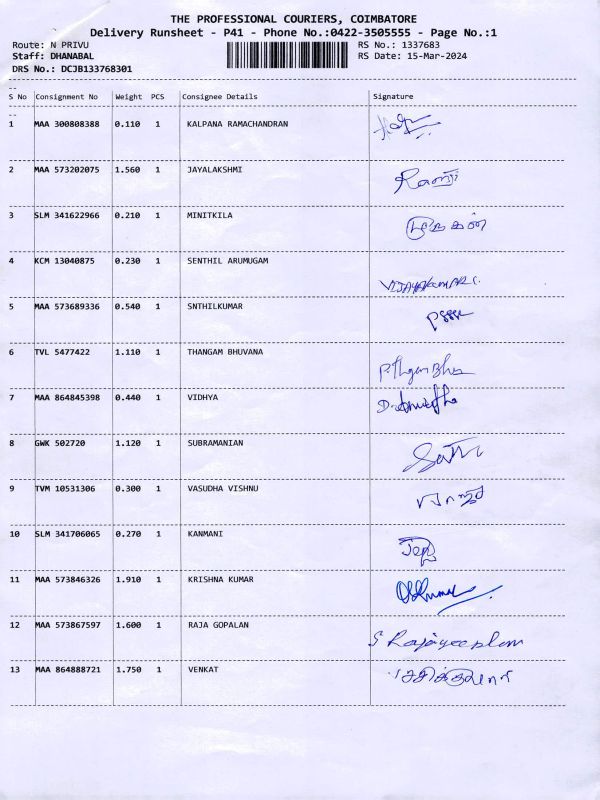 THE PROFESSIONAL COURIERS, COIMBATORE
Delivery Runsheet - P41 - Phone No.:0422-3505555 - Page No.:1
Route: N PRIVU RS No.: 1337683
Staff: DHANABAL RS Date: 15-Mar-2024
DRS No.: DCJB133768301
S No Consignment No Weight PCS Consignee Details Signature
1 MAA 300808388 0.110 1 KALPANA RAMACHANDRAN
2 MAA 573202075 1.560 1 JAYALAKSHMI
3 SLM 341622966 0.210 1 MINITKILA
4 KCM 13040875 0.230 1 SENTHIL ARUMUGAM
VIJAYAKUMAR C.
5 MAA 573689336 0.540 1 SNTHILKUMAR
6 TVL 5477422 1.110 1 THANGAM BHUVANA
7 MAA 864845398 0.440 1 VIDHYA
8 GWK 502720 1.120 1 SUBRAMANIAN
9 TVM 10531306 0.300 1 VASUDHA VISHNU
10 SLM 341706065 0.270 1 KANMANI
11 MAA 573846326 1.910 1 KRISHNA KUMAR
12 MAA 573867597 1.600 1 RAJA GOPALAN
S Rajagopalan
13 MAA 864888721 1.750 1 VENKAT